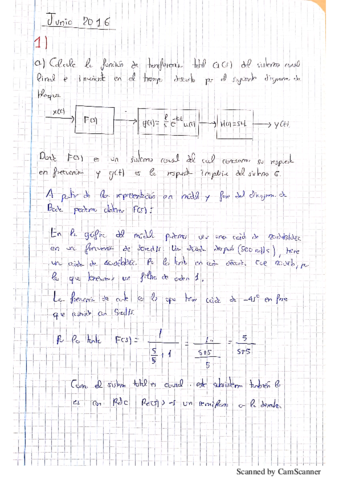 Junio 2016
1)
a) Calcule la función de transferencia total del sistema causal
lineal e invariante en el tiempo descrito por el siguiente diagrama de
bloques
x(t) F(s) g(t)= u(t) H(s)=s+1 y(t)
Donde F(s) es un sistema causal del cual conocemos su respuesta
en frecuencia y g(t) es la respuesta impulsiva del sistema G.
A partir de la representación en módulo y fase del diagrama de
Bode podemos obtener F(s):
En la gráfica del módulo podemos ver una caída de
en una frecuencia de 5rad/s. Una década después (50rad/s), tiene
una caída de Por lo tanto en cada década cae por
lo que tenemos un filtro de orden 1.
La frecuencia de corte es la que tiene caída de -45° en fase
que ocurre en 5rad/s
Por lo tanto F(s) = 1 / (s/5 + 1) = = 5 / (s+5)
Como el sistema total es causal este subsistema también lo
es con RdC Re(s) > -5 un semiplano a la derecha.
Scanned by CamScanner